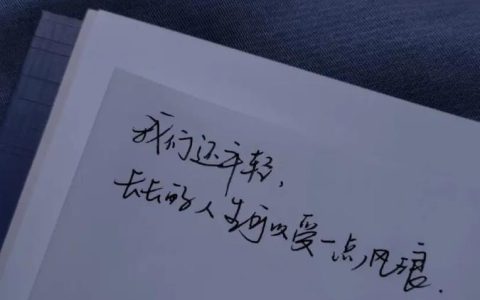 我们还年轻，
长长的人生可以受一点风浪.